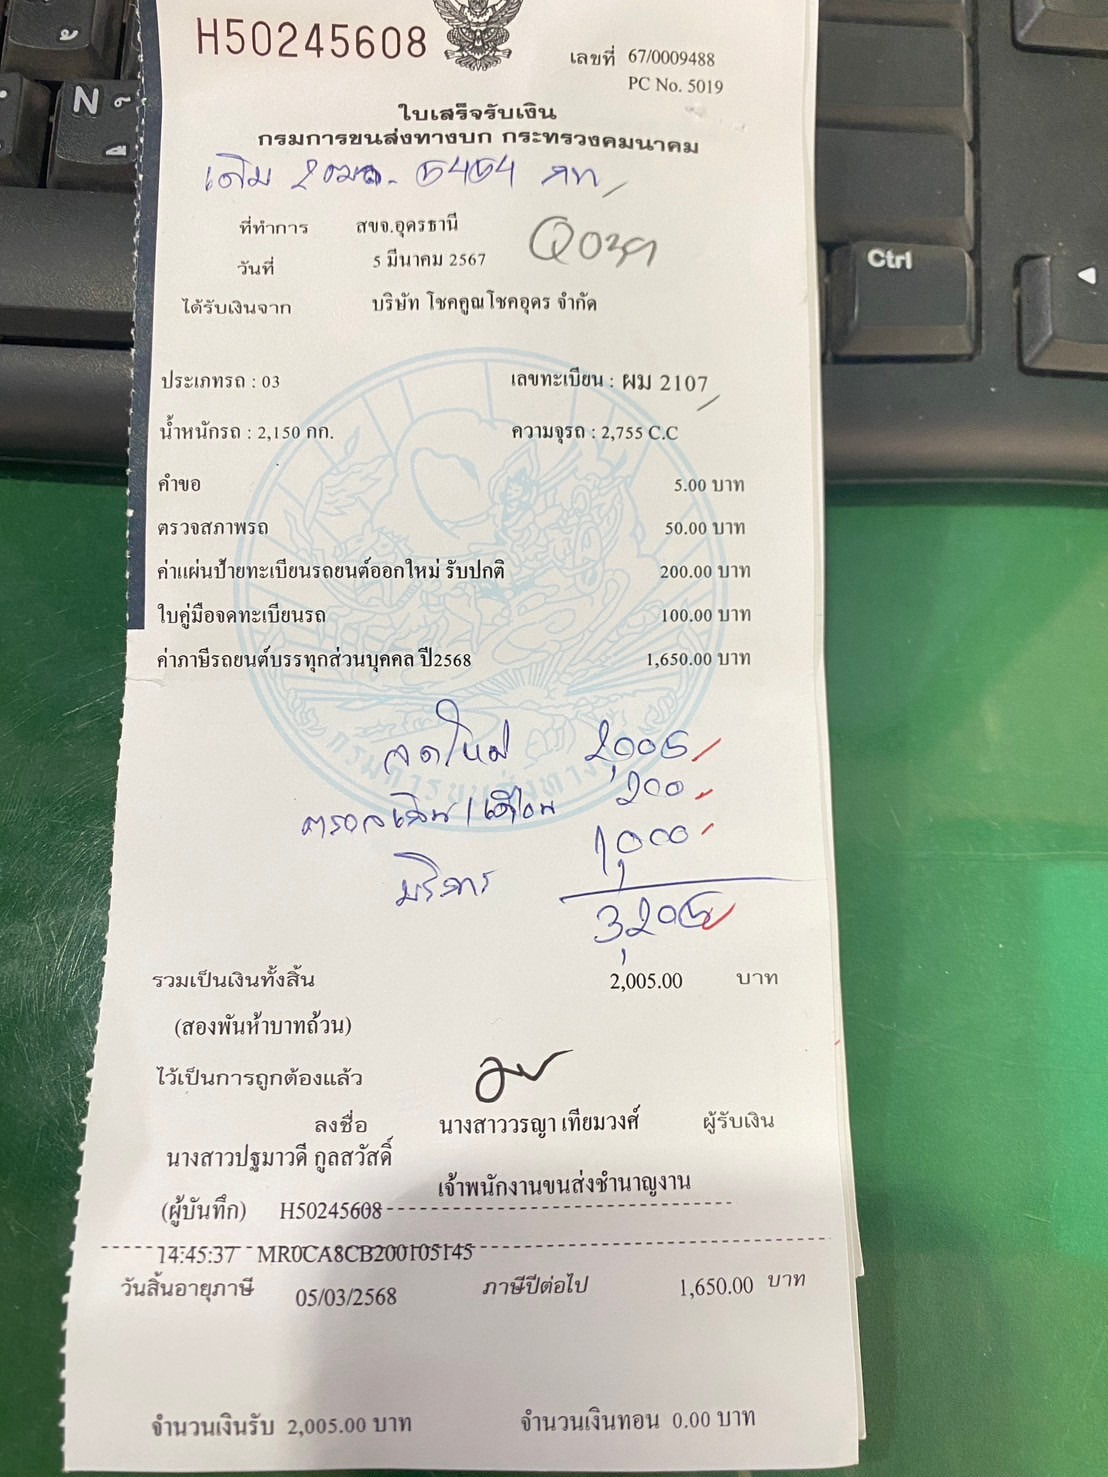 H50245608
เลขที่ 67/0009488
PC No. 5019
ใบเสร็จรับเงิน
กรมการขนส่งทางบก กระทรวงคมนาคม
เดิม 2ฒฉ. 5454 กท
ที่ทำการ สขจ.อุดรธานี
วันที่ 5 มีนาคม 2567
ได้รับเงินจาก บริษัท โชคคูณโชคอุดร จำกัด
ประเภทรถ : 03 เลขทะเบียน : ผม 2107
น้ำหนักรถ : 2,150 กก. ความจุรถ : 2,755 C.C
คำขอ 5.00 บาท
ตรวจสภาพรถ 50.00 บาท
ค่าแผ่นป้ายทะเบียนรถยนต์ออกใหม่ รับปกติ 200.00 บาท
ใบคู่มือจดทะเบียนรถ 100.00 บาท
ค่าภาษีรถยนต์บรรทุกส่วนบุคคล ปี2568 1,650.00 บาท
จดใหม่ 2,005
200
1,000
บริการ
3,205
รวมเป็นเงินทั้งสิ้น 2,005.00 บาท
(สองพันห้าบาทถ้วน)
ไว้เป็นการถูกต้องแล้ว
ลงชื่อ นางสาววรญา เทียมวงศ์ ผู้รับเงิน
นางสาวปฐมาวดี กูลสวัสดิ์
เจ้าพนักงานขนส่งชำนาญงาน
(ผู้บันทึก) H50245608
14:45:37 MR0CA8CB200105145
วันสิ้นอายุภาษี 05/03/2568 ภาษีปีต่อไป 1,650.00 บาท
จำนวนเงินรับ 2,005.00 บาท จำนวนเงินทอน 0.00 บาท
N
Ctrl